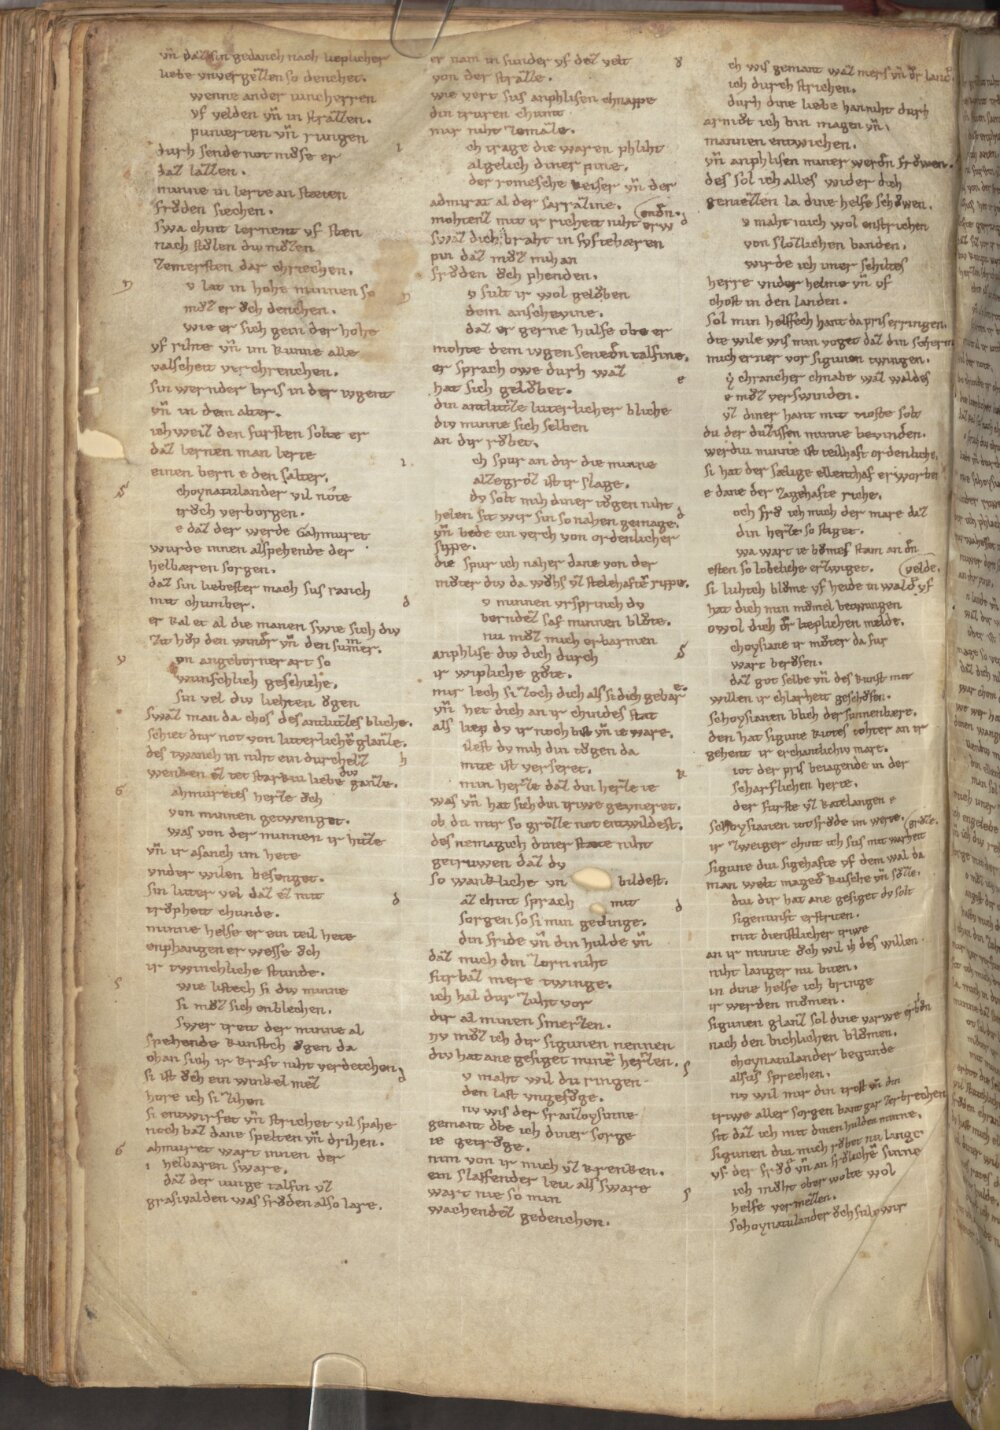 vn̄ daz sin gedanch nach lieplicher
liebe vnvergezzen so denchet.
wenne ander iuncherren
vf velden vn̄ in strazzen.
punierten vn̄ rungen
durh sende not mͦse er
daz lazzen.
minne in lerte an stæten
frͦden siechen.
swa chint lernent vf sten
nach stͦlen div mͦzen
zemersten dar chriechen.
v lat in hohe minnen so
mͦz er ͦch denchen.
wie er sich gein der hohe
vf rihte vn̄ im kunne alle
valscheit verchrenchen.
sin wernder bris in der iugent
vn̄ in dem alter.
ich weiz den fursten solte er
daz lernen man lerte
einen bern e den salter.
S choynatulander vil note
trͦch verborgen.
e daz der werde Gahmuret
wurde innen al spehende der
helbæren sorgen.
daz sin liebester mach sus ranch
mit chumber.
er kal et al die manen swie sich div
zit hͦp den winter vn̄ den sumer.
v on angeborner art so
wunschlich geschihe.
sin vel div liehten ͦgen
swaz man da chos des antluzes bliche.
schiet dur not von luterliche glanze.
des twanch in niht ein durchelz
wenken ez tet starkiu liebe div ganze.
G ahmuretes herze ͦch
von minnen getwenget.
was von der minnen ir hitze
vn̄ ir asanch im hete
vnder wilen besenget.
sin luter vel daz ez mit
trͦpheit chunde.
minne helfe er ein teil hete
enphangen er wesse ͦch
ir twinchliche stunde.
S wie listech si div minne
si mͦz sich enblechen.
swer treit der minne al
spehende kunstich ͦgen da
chan sich ir kraft niht verdecchen
si ist ͦch ein winkel mez
hore ich si zihen
si entwirfet vn̄ strichet vil spahe
noch baz dane spelten vn̄ drihen.
G ahmuret wart innen der
helbaren sware.
daz der iunge talfin vz
graswalden was frͦden also lare.
er nam in sunder vf dez velt
von der strazze.
wie vert sus anphlisen chnappe
din truren chumt
mir niht zemaze.
I ch trage die waren phliht
algelich diner pine.
der romesche keiser vn̄ der
admirat al der sarrazine.
mohtenz mit ir richeit niht erwenden.
swaz dich braht in syfteberen
pin daz mͦz mih an
frͦden ͦch phenden.
N v sult ir wol gelͦben
dem anscheyine.
daz er gerne hulfe obe er
mohte dem iugen senedn̄ talfine.
er sprach owe durh waz
hat sich gelͦbet.
din antlutze luterlicher bliche
div minne sich selben
an dir rͦbet.
I ch spur an dir die minne
alzegroz ist ir slage.
dv solt mih diner tͦgen niht
helen sit wir sin so nahen gemage.
vn̄ bede ein verch von ordenlicher
sippe.
die spur ich naher dane von der
mͦter div da wͦhs vz stelehafte rippe.
D v minnen vrsprinch dv
berndez saf minnen blͦte.
nu mͦz mich erbarmen
anphlise div dich durch
ir wipliche gͦte.
mir lech si zoch dich als si dich gebære
vn̄ het dich an ir chindes stat
als liep dv ir noch bist vn̄ ie ware.
H ilest dv mih din tͦgen da
mite ist verseret.
min herze daz din herze ie
was vn̄ hat sich din triwe geuneret.
ob du mir so grozze not entwildest.
des nemagich diner stæte niht
getruwen daz dv
so wankliche vn bildest.
D az chint sprach mit
sorgen so si min gedinge.
din fride vn̄ din hulde vn̄
daz mich din zorn niht
furbaz mere twinge.
ich hal dur zuht vor
dir al minen smerzen.
nv mͦz ich dir sigunen nennen
div hat ane gesiget mine herzen.
D v maht wil du ringen
den last vngefͦge.
nv wis der franzoysinne
gemant obe ich diner sorge
ie getrͦge.
nim von ir mich vz krenken.
ein slaffender leu als sware
wart nie so min
wachendez gedenchen.
O ch wis gemant waz mers vn̄ der lande
ich durch strichen.
durh dine liebe han niht durh
armͦt ich bin magen vn̄
mannen entwichen.
vn̄ anphlisen miner werdn̄ frͦwen.
des sol ich alles wider dich
geniezzen la dine helfe schͦwen.
D v maht mich wol enstrichen
von slozlichen banden.
wirde ich imer schiltes
herre vnder helme vn̄ vf
chost in den landen.
sol min helffech hant da pris erringen.
die wile wis min voget daz din scherm
mich erner vor sigunen twingen.
E y chrancher chnabe waz waldes
e mͦz verswinden.
vz diner hant mit tioste solt
du der duzissen minne bevinden.
werdiu minne ist teilhaft ordenliche.
si hat der sælige ellenthaft erworben
e dane der zagehafte riche.
D och frͦ ich mich der mare daz
din herze so stiget.
wa wart ie bͦmes stam an dn̄
esten so lobeliche erzwiget.
si luhtech blͦme vf heide in walde vf velde.
hat dich min mͦmel betwungen
owol dich der lieplichen melde.
S choysiane ir mͦter da fur
wart berͦfen.
daz got selbe vn̄ des kunst mit
willen ir chlarheit geschͦfen.
schoysianen blich der sunnenbære.
den hat sigune kiotes tohter an ir
gehent ir erchantlichiv mære.
K iot der pris beiagende in der
scharflichen herte.
der furste vz katelangen e
schoysianen tot frͦde im werte.
ir zweiger chint ich sus mit warheit grͦze.
Sigune diu sigehafte vf dem wal da
man welt maged̄ kusche vn̄ sͦze.
D iu dir hat ane gesiget dv solt
sigenunft erstriten.
mit dienstlicher triwe
an ir minne ͦch wil ih des willen
niht langer nu biten.
in dine helfe ich bringe
ir werden mͦmen.
sigunen glanz sol dine varwe erbln̄
nach den blichlichen blͦmen.
S choynatulander begunde
alsus sprechen.
nv wil mir din trost vn̄ din
triwe aller sorgen bant gar zerbrechen
sit daz ich mit dinen hulden minne.
sigunen diu mich rͦbet nu lange
vf der frͦd vn̄ an frͦliche sinne
S ich moht ober wolte wol
helfe vermezzen.
schoynatulander ͦch sulewir